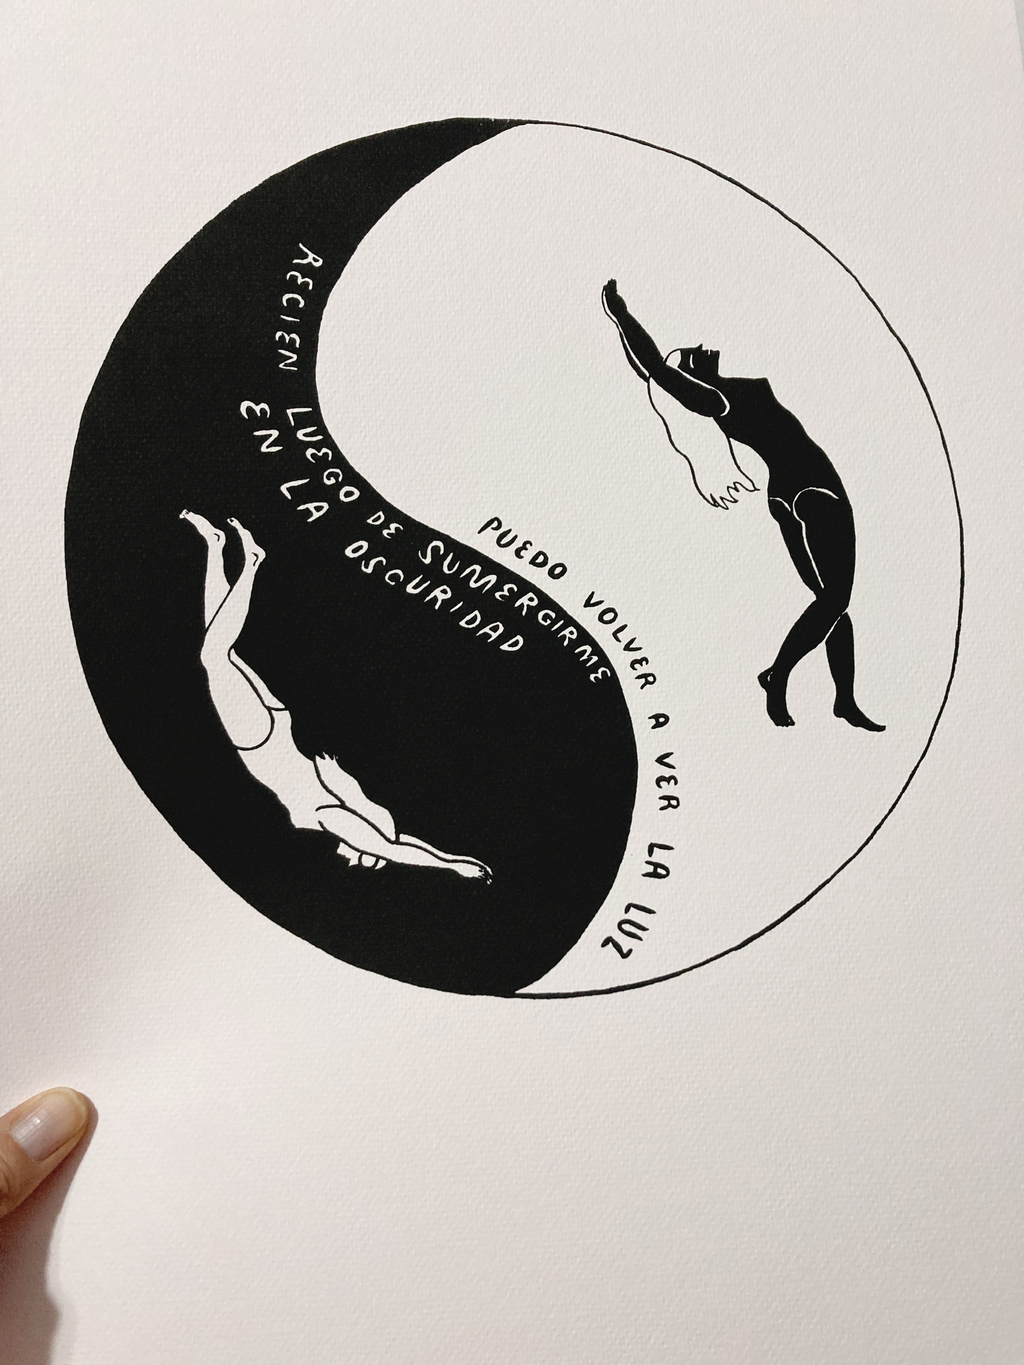 RECIEN LUEGO DE SUMERGIRME
EN LA OSCURIDAD
PUEDO VOLVER A VER LA LUZ